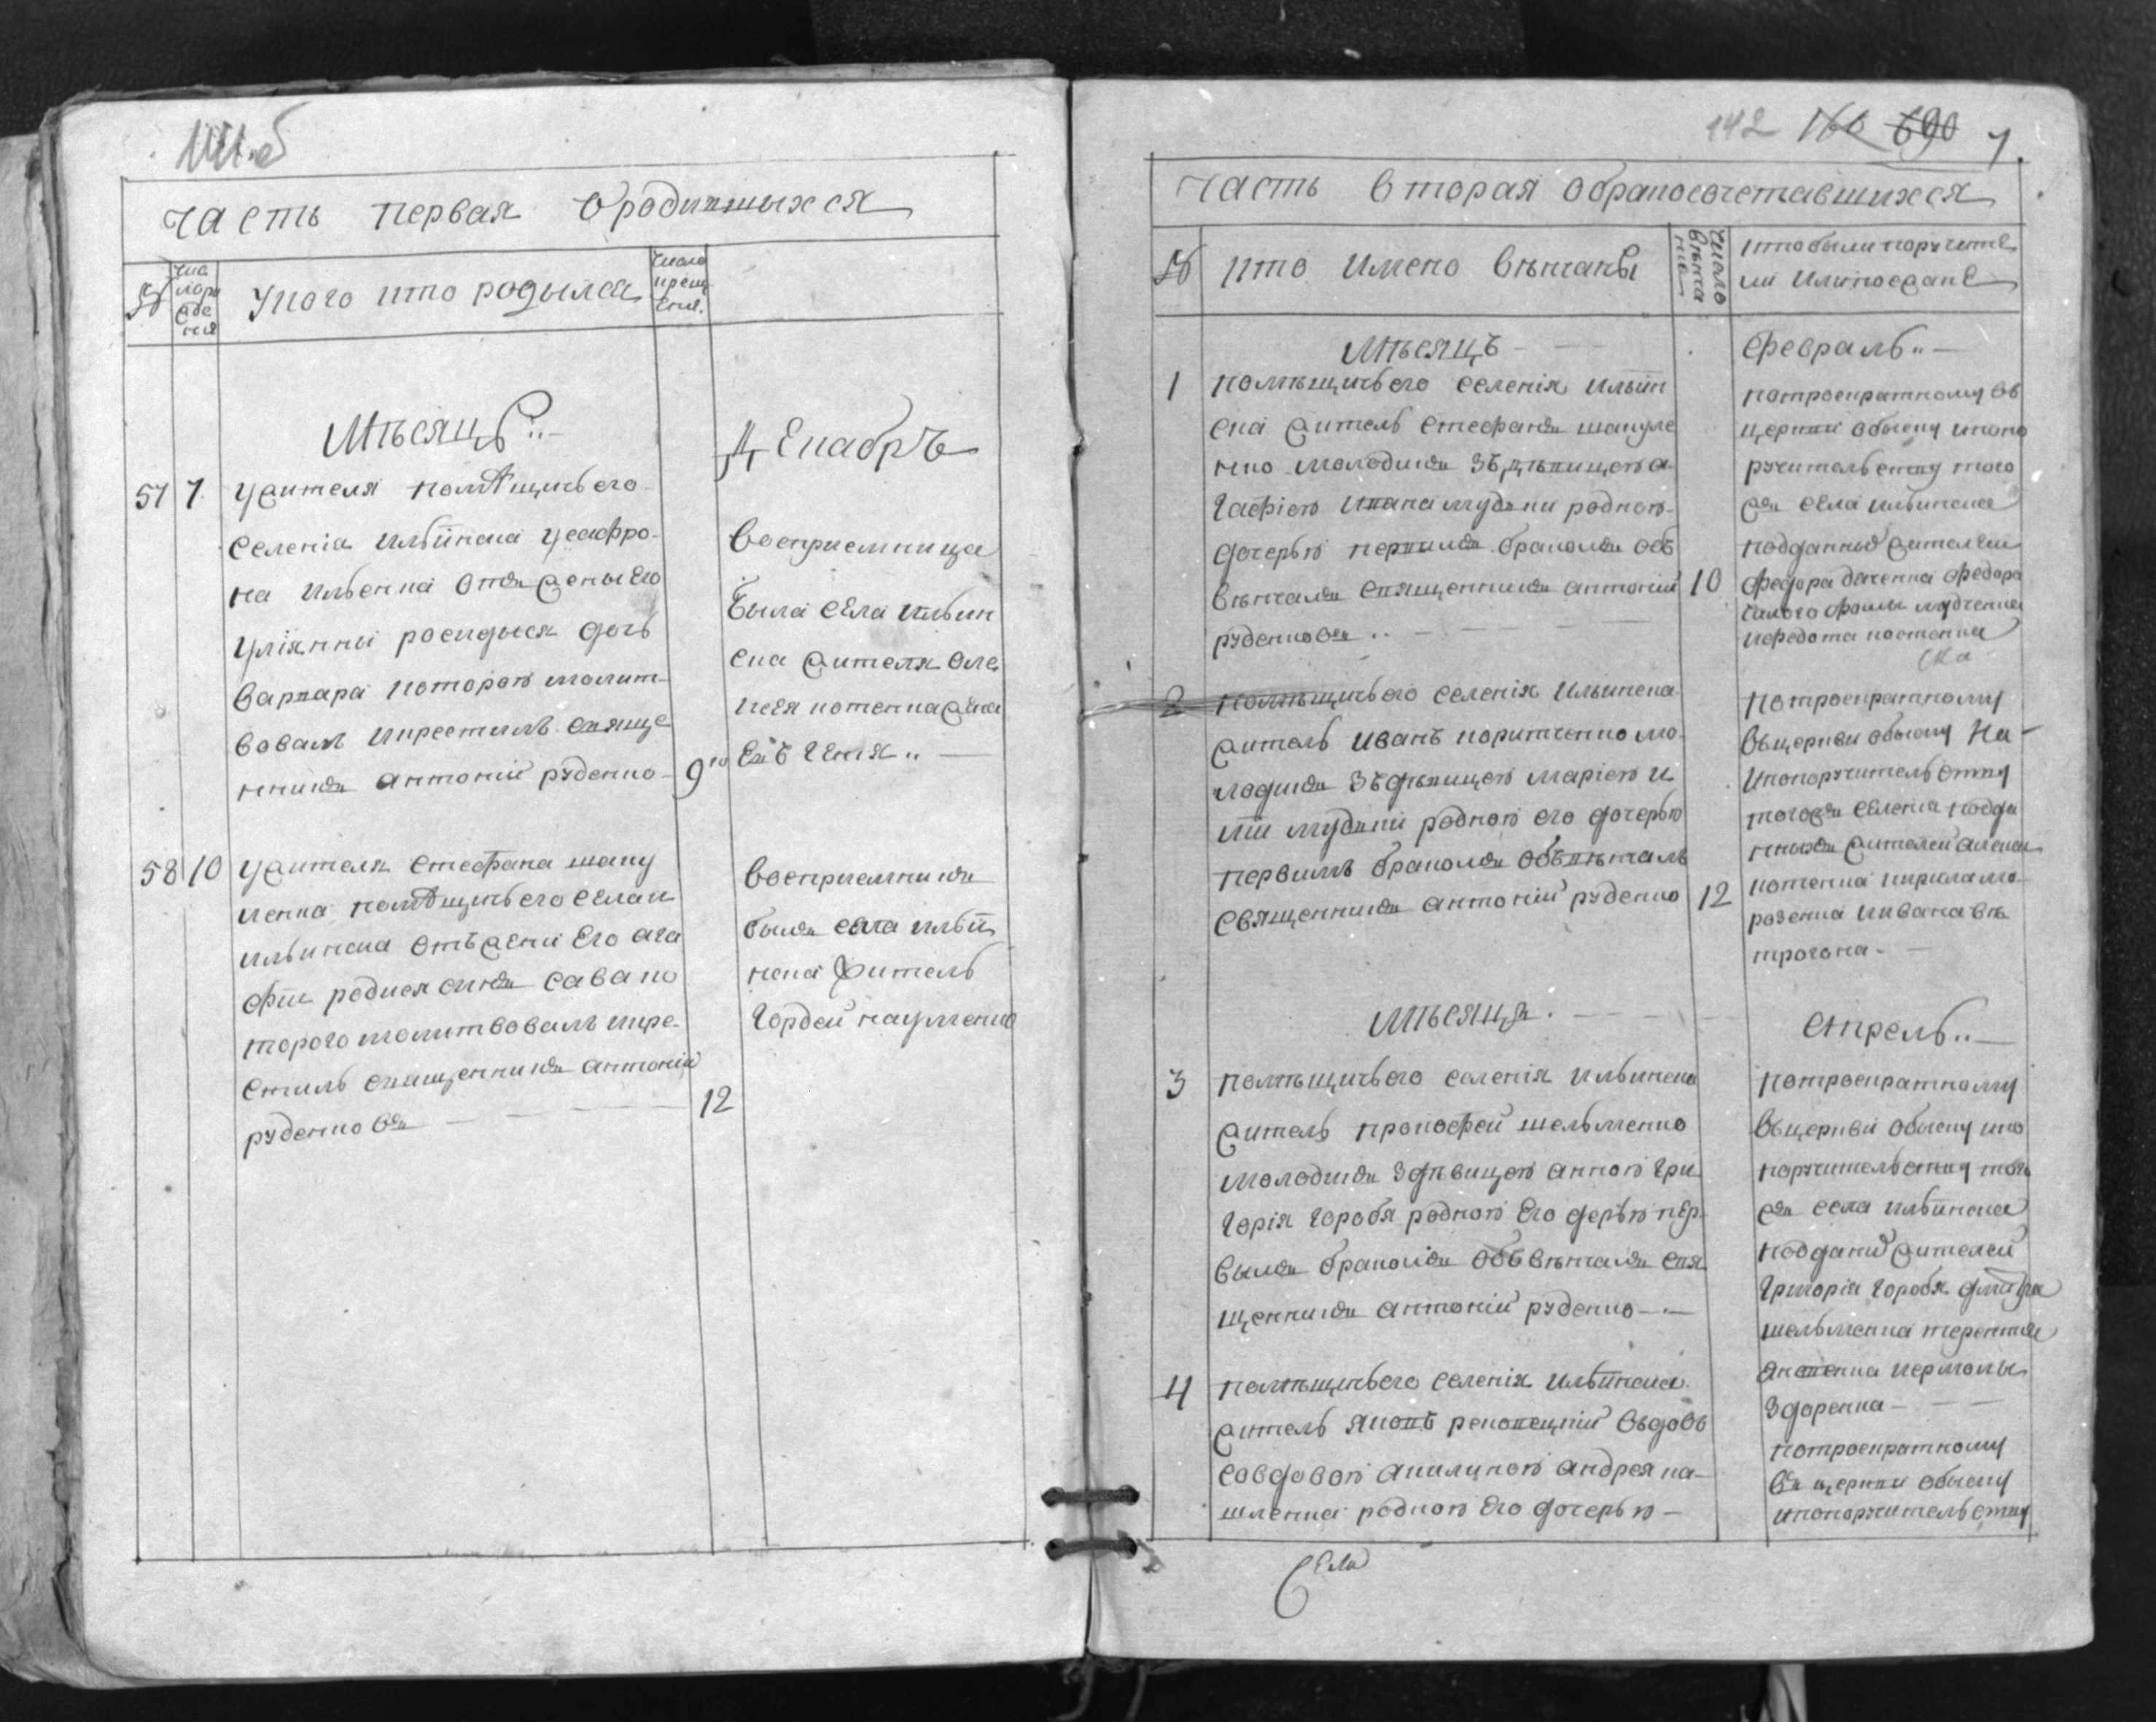 часть первая Ородившыхся
№
Число рождения
Укого кто родылся
Число крещения.
Мѣсяцъ
Декабръ
57 7 Ужителя помѣщичьего
селенія ильинска уеафро-
на ильенка отъ жены его
уліянны росидыся дочъ
варвара которою молит-
вовалъ икрестилъ свяще
нникъ антоній руденко 9
восприемница
была села ильин
ска жителя але
ксея котенка жена
58 10 ужителя стефана шаку
ленка помѣщичьего села
ильинска отъ жени его ага
фіи родися синъ сава ко
торого молитвовалъ икре-
стилъ священникъ антоній
руденковъ 12
восприемникъ
былъ села ильи
нска житель
гордей науменко
142 166 690 7
часть вторая обракосочетавшихся
№ кто имено вѣнчаны
Число вѣнчанія
кто были поручите
ли
Мѣсяцъ
февраль
1 помѣщичьего селенія ильин
ска житель стефанъ шакуле
нко молодикъ зъ дѣвицею а
гафіею родною
дочерью первимъ бракомъ объ
вѣнчалъ священникъ антоній 10
руденковъ
потроекратному въ
церкви обыску ипопо
ручительству того
жъ села ильинска
подданыхъ жителей
федора федора
фомы
ифедота костенка
ска
2 помѣщичьего селенія ильинска
житель иванъ коритченко мо
лодикъ зъ дѣвицею маріею и
родною его дочерью
первимъ бракомъ обвѣнчалъ
священникъ антоній руденко 12
потроекратному
въцеркви обыску На-
ипопоручительству
тогожъ селенія подда
нныхъ жителей алексея
котенка кирила мо
розенка иивана вѣ
трогона
Мѣсяцъ
Апрель
3 помѣщичьего селенія ильинска
житель прокофей шельменко
молодикъ здѣвицею анною гри
горія горобя родною его дочерью пер
вымъ бракомъ объвѣнчалъ свя
щенникъ антоній руденко
потроекратному
въцеркви обыску ипо
поручительству того
жъ села ильинска
поддани жителей
григорія горобя дмитра
шельменка терентия
иермолы
здоренка
4 помѣщичьего селенія ильинска
житель яковъ въдовъ
совдовою акилиною андрея па
шленка родною его дочерью
потроекратному
въ церкви обыску
ипопоручительству
села